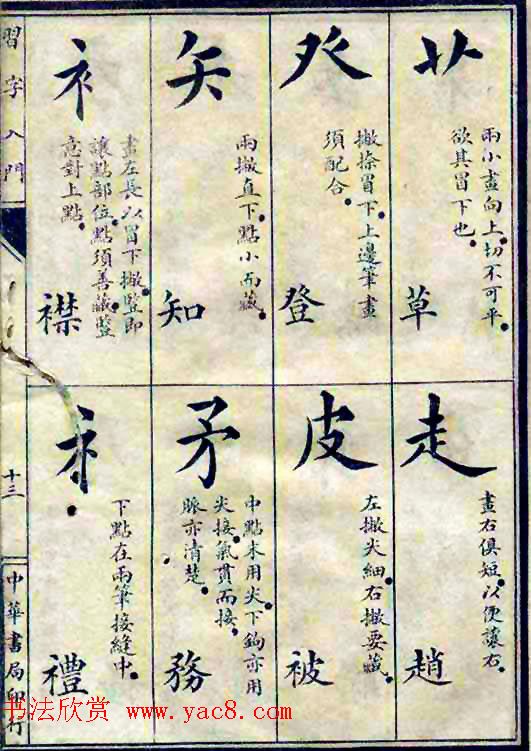 艹
兩小畫向上。切不可平。
欲其冒下也。
草
癶
撇捺冒下。上邊筆畫
須配合。
登
矢
兩撇直下。點小而藏。
知
衤
畫左長。以冒下撇。豎即
讓點部位。點須善藏。豎
意對上點。
襟
走
畫右俱短。以便讓右。
趙
皮
左撇尖細。右撇要藏。
被
矛
中點末用尖。下鉤亦用
尖接。氣貫而接。
脈亦清楚。
務
礻
下點在兩筆接縫中。
禮
習字入門
十三
中華書局印行
书法欣赏 www.yac8.com